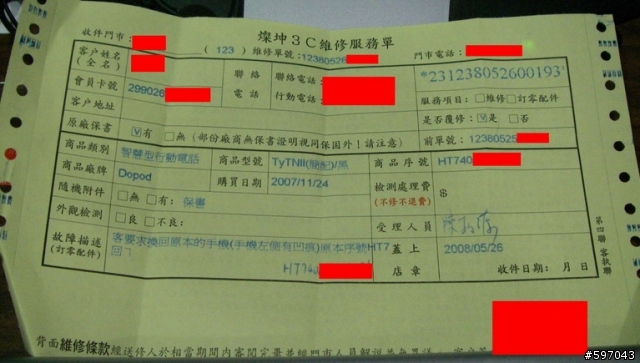 燦坤3C維修服務單
收件門市：
( 123 ) 維修單號：12380526
門市電話：
客戶姓名
(全名)
聯絡電話
聯絡電話：
行動電話：
*231238052600193*
會員卡號 299026
服務項目：□維修□訂零配件
客戶地址
是否覆修：☑是 □否
原廠保書 ☑有 □無 (部份廠商無保書證明視同保固外！請注意)
前單號：12380525
商品類別 智慧型行動電話
商品型號 TyTNII(簡配)/黑
商品序號 HT740
商品廠牌 Dopod
購買日期 2007/11/24
檢測處理費
(不修不退費)
$
隨機附件 □無 □有：保書
外觀檢測 □良 □不良：
受理人員
故障描述
(訂零配件)
客要求換回原本的手機(手機左側有凹痕)原本序號HT7
回
HT740
蓋上店章
2008/05/26
收件日期： 月 日
第四聯 客執聯
背面維修條款
#597043